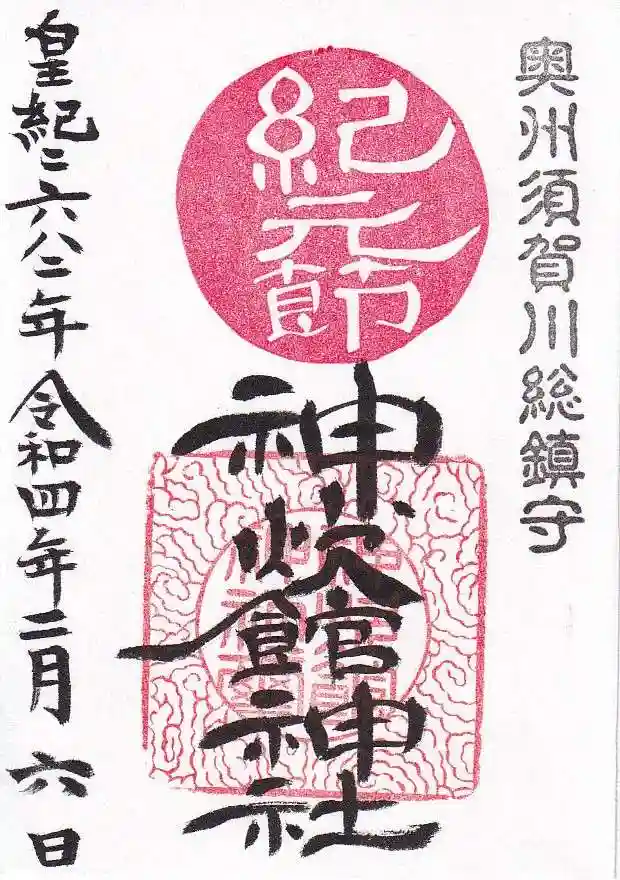 奥州須賀川総鎮守
紀元節
神炊館神社
皇紀二六八二年 令和四年二月 六日